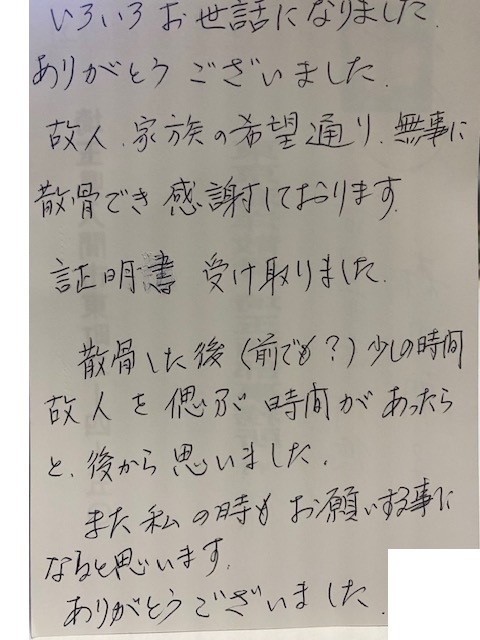 いろいろお世話になりました.
ありがとうございました.
故人.家族の希望通り.無事に
散骨でき感謝しております.
証明書 受け取りました.
散骨した後(前でも?)少しの時間
故人を偲ぶ時間があったら
と.後から思いました.
また私の時もお願いする事に
なると思います.
ありがとうございました.